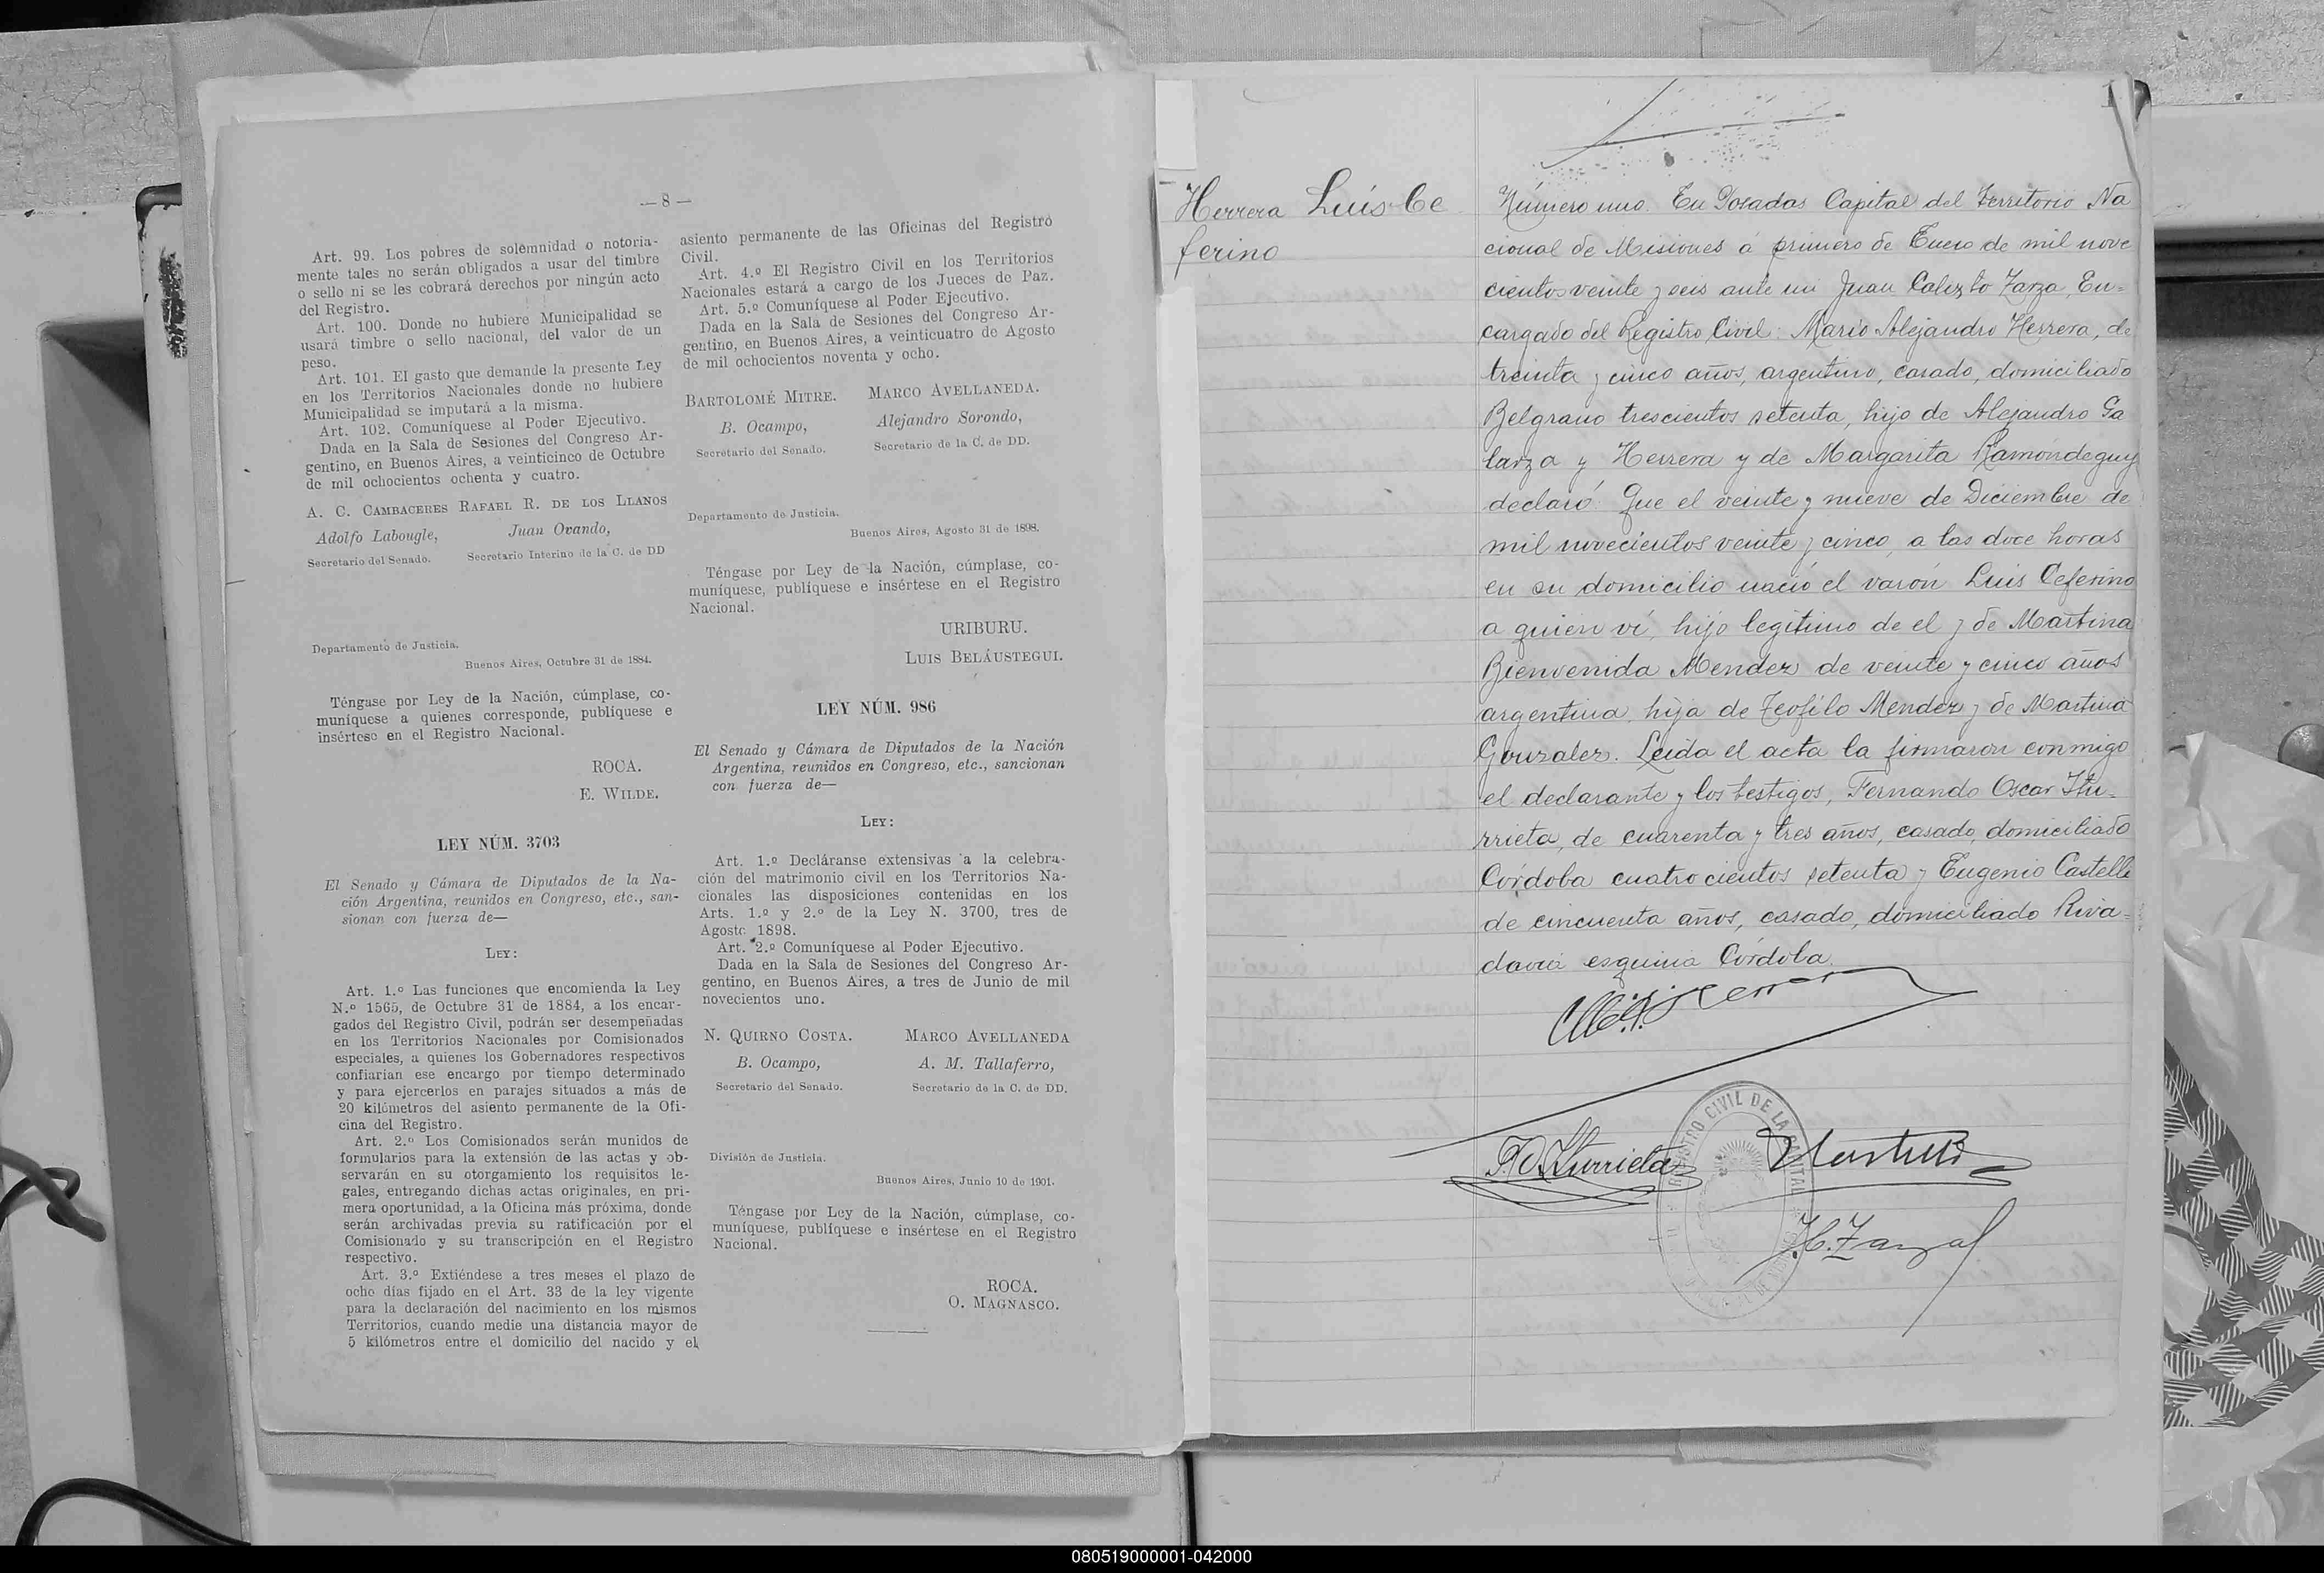 — 8 —
Art. 99. Los pobres de solemnidad o notoria-
mente tales no serán obligados a usar del timbre
o sello ni se les cobrará derechos por ningún acto
del Registro.
Art. 100. Donde no hubiere Municipalidad se
usará timbre o sello nacional, del valor de un
peso.
Art. 101. El gasto que demande la presente Ley
en los Territorios Nacionales donde no hubiere
Municipalidad se imputará a la misma.
Art. 102. Comuníquese al Poder Ejecutivo.
Dada en la Sala de Sesiones del Congreso Ar-
gentino, en Buenos Aires, a veinticinco de Octubre
de mil ochocientos ochenta y cuatro.
A. C. CAMBACERES RAFAEL R. DE LOS LLANOS
Adolfo Labougle, Juan Ovando,
Secretario del Senado. Secretario Interino de la C. de DD
Departamento de Justicia.
Buenos Aires, Octubre 31 de 1884.
Téngase por Ley de la Nación, cúmplase, co-
muníquese a quienes corresponde, publíquese e
insértese en el Registro Nacional.
ROCA.
E. WILDE.
LEY NÚM. 3703
El Senado y Cámara de Diputados de la Na-
ción Argentina, reunidos en Congreso, etc., san-
sionan con fuerza de—
LEY:
Art. 1.º Las funciones que encomienda la Ley
N.º 1565, de Octubre 31 de 1884, a los encar-
gados del Registro Civil, podrán ser desempeñadas
en los Territorios Nacionales por Comisionados
especiales, a quienes los Gobernadores respectivos
confiarian ese encargo por tiempo determinado
y para ejercerlos en parajes situados a más de
20 kilómetros del asiento permanente de la Ofi-
cina del Registro.
Art. 2.º Los Comisionados serán munidos de
formularios para la extensión de las actas y ob-
servarán en su otorgamiento los requisitos le-
gales, entregando dichas actas originales, en pri-
mera oportunidad, a la Oficina más próxima, donde
serán archivadas previa su ratificación por el
Comisionado y su transcripción en el Registro
respectivo.
Art. 3.º Extiéndese a tres meses el plazo de
ocho días fijado en el Art. 33 de la ley vigente
para la declaración del nacimiento en los mismos
Territorios, cuando medie una distancia mayor de
5 kilómetros entre el domicilio del nacido y el
asiento permanente de las Oficinas del Registro
Civil.
Art. 4.º El Registro Civil en los Territorios
Nacionales estará a cargo de los Jueces de Paz.
Art. 5.º Comuníquese al Poder Ejecutivo.
Dada en la Sala de Sesiones del Congreso Ar-
gentino, en Buenos Aires, a veinticuatro de Agosto
de mil ochocientos noventa y ocho.
BARTOLOMÉ MITRE. MARCO AVELLANEDA.
B. Ocampo, Alejandro Sorondo,
Secretario del Senado. Secretario de la C. de DD.
Departamento de Justicia.
Buenos Aires, Agosto 31 de 1898.
Téngase por Ley de la Nación, cúmplase, co-
muníquese, publíquese e insértese en el Registro
Nacional.
URIBURU.
LUIS BELÁUSTEGUI.
LEY NÚM. 986
El Senado y Cámara de Diputados de la Nación
Argentina, reunidos en Congreso, etc., sancionan
con fuerza de—
LEY:
Art. 1.º Decláranse extensivas a la celebra-
ción del matrimonio civil en los Territorios Na-
cionales las disposiciones contenidas en los
Arts. 1.º y 2.º de la Ley N. 3700, tres de
Agosto 1898.
Art. 2.º Comuníquese al Poder Ejecutivo.
Dada en la Sala de Sesiones del Congreso Ar-
gentino, en Buenos Aires, a tres de Junio de mil
novecientos uno.
N. QUIRNO COSTA. MARCO AVELLANEDA
B. Ocampo, A. M. Tallaferro,
Secretario del Senado. Secretario de la C. de DD.
División de Justicia.
Buenos Aires, Junio 10 de 1901.
Téngase por Ley de la Nación, cúmplase, co-
muníquese, publíquese e insértese en el Registro
Nacional.
ROCA.
O. MAGNASCO.
Herrera Luis Ce
ferino
Número uno. En Posadas Capital del Territorio Na
cional de Misiones á primero de Enero de mil nove
cientos veinte y seis ante mi Juan Calixto Zarza, En=
cargado del Registro Civil: Mario Alejandro Herrera, de
treinta y cinco años, argentino, casado, domiciliado
Belgrano trescientos setenta, hijo de Alejandro Ga
larza y Herrera y de Margarita Ramondeguy
declaró: Que el veinte y nueve de Diciembre de
mil novecientos veinte y cinco, a las doce horas
en su domicilio nació el varón Luis Ceferino
a quien ví, hijo legitimo de el y de Martina
Bienvenida Mendez de veinte y cinco años
argentina, hija de Teofilo Mendez y de Martina
Gonzalez. Leida el acta la firmaron conmigo
el declarante y los testigos, Fernando Oscar Itu-
rrieta, de cuarenta y tres años, casado, domiciliado
Córdoba cuatrocientos setenta y Eugenio Castelli
de cincuenta años, casado, domiciliado Riva=
davia esquina Córdoba.
F. O. Iturrieta
REGISTRO CIVIL DE LA CAPITAL
J.C. Zarza
080519000001-042000